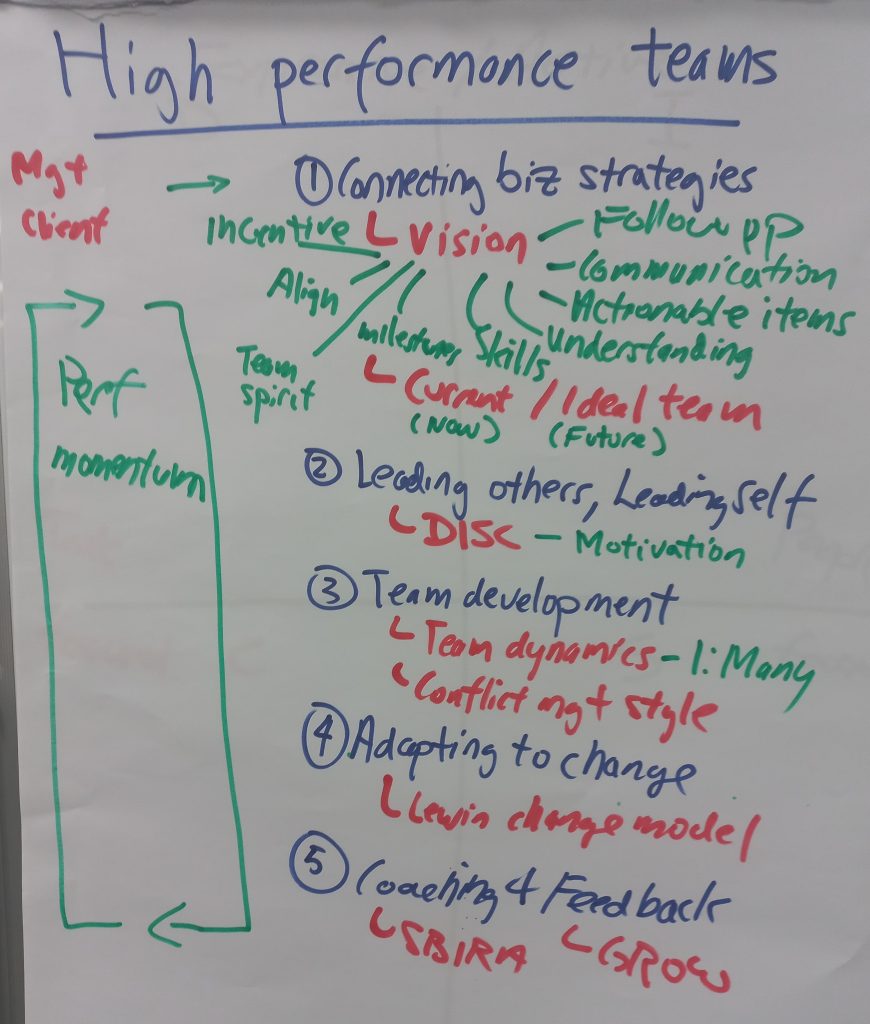 High performance teams
Mgt
Client
→ ① Connecting biz strategies
Vision
Incentive
Align
Team
spirit
milestones
Skills
Follow up
Communication
Actionable items
Understanding
Current / Ideal team
(Now) (Future)
Perf
momentum
② Leading others, Leading self
DISC – Motivation
③ Team development
Team dynamics – 1:Many
Conflict mgt style
④ Adapting to change
Lewin change model
⑤ Coaching & Feedback
SBIRA GROW